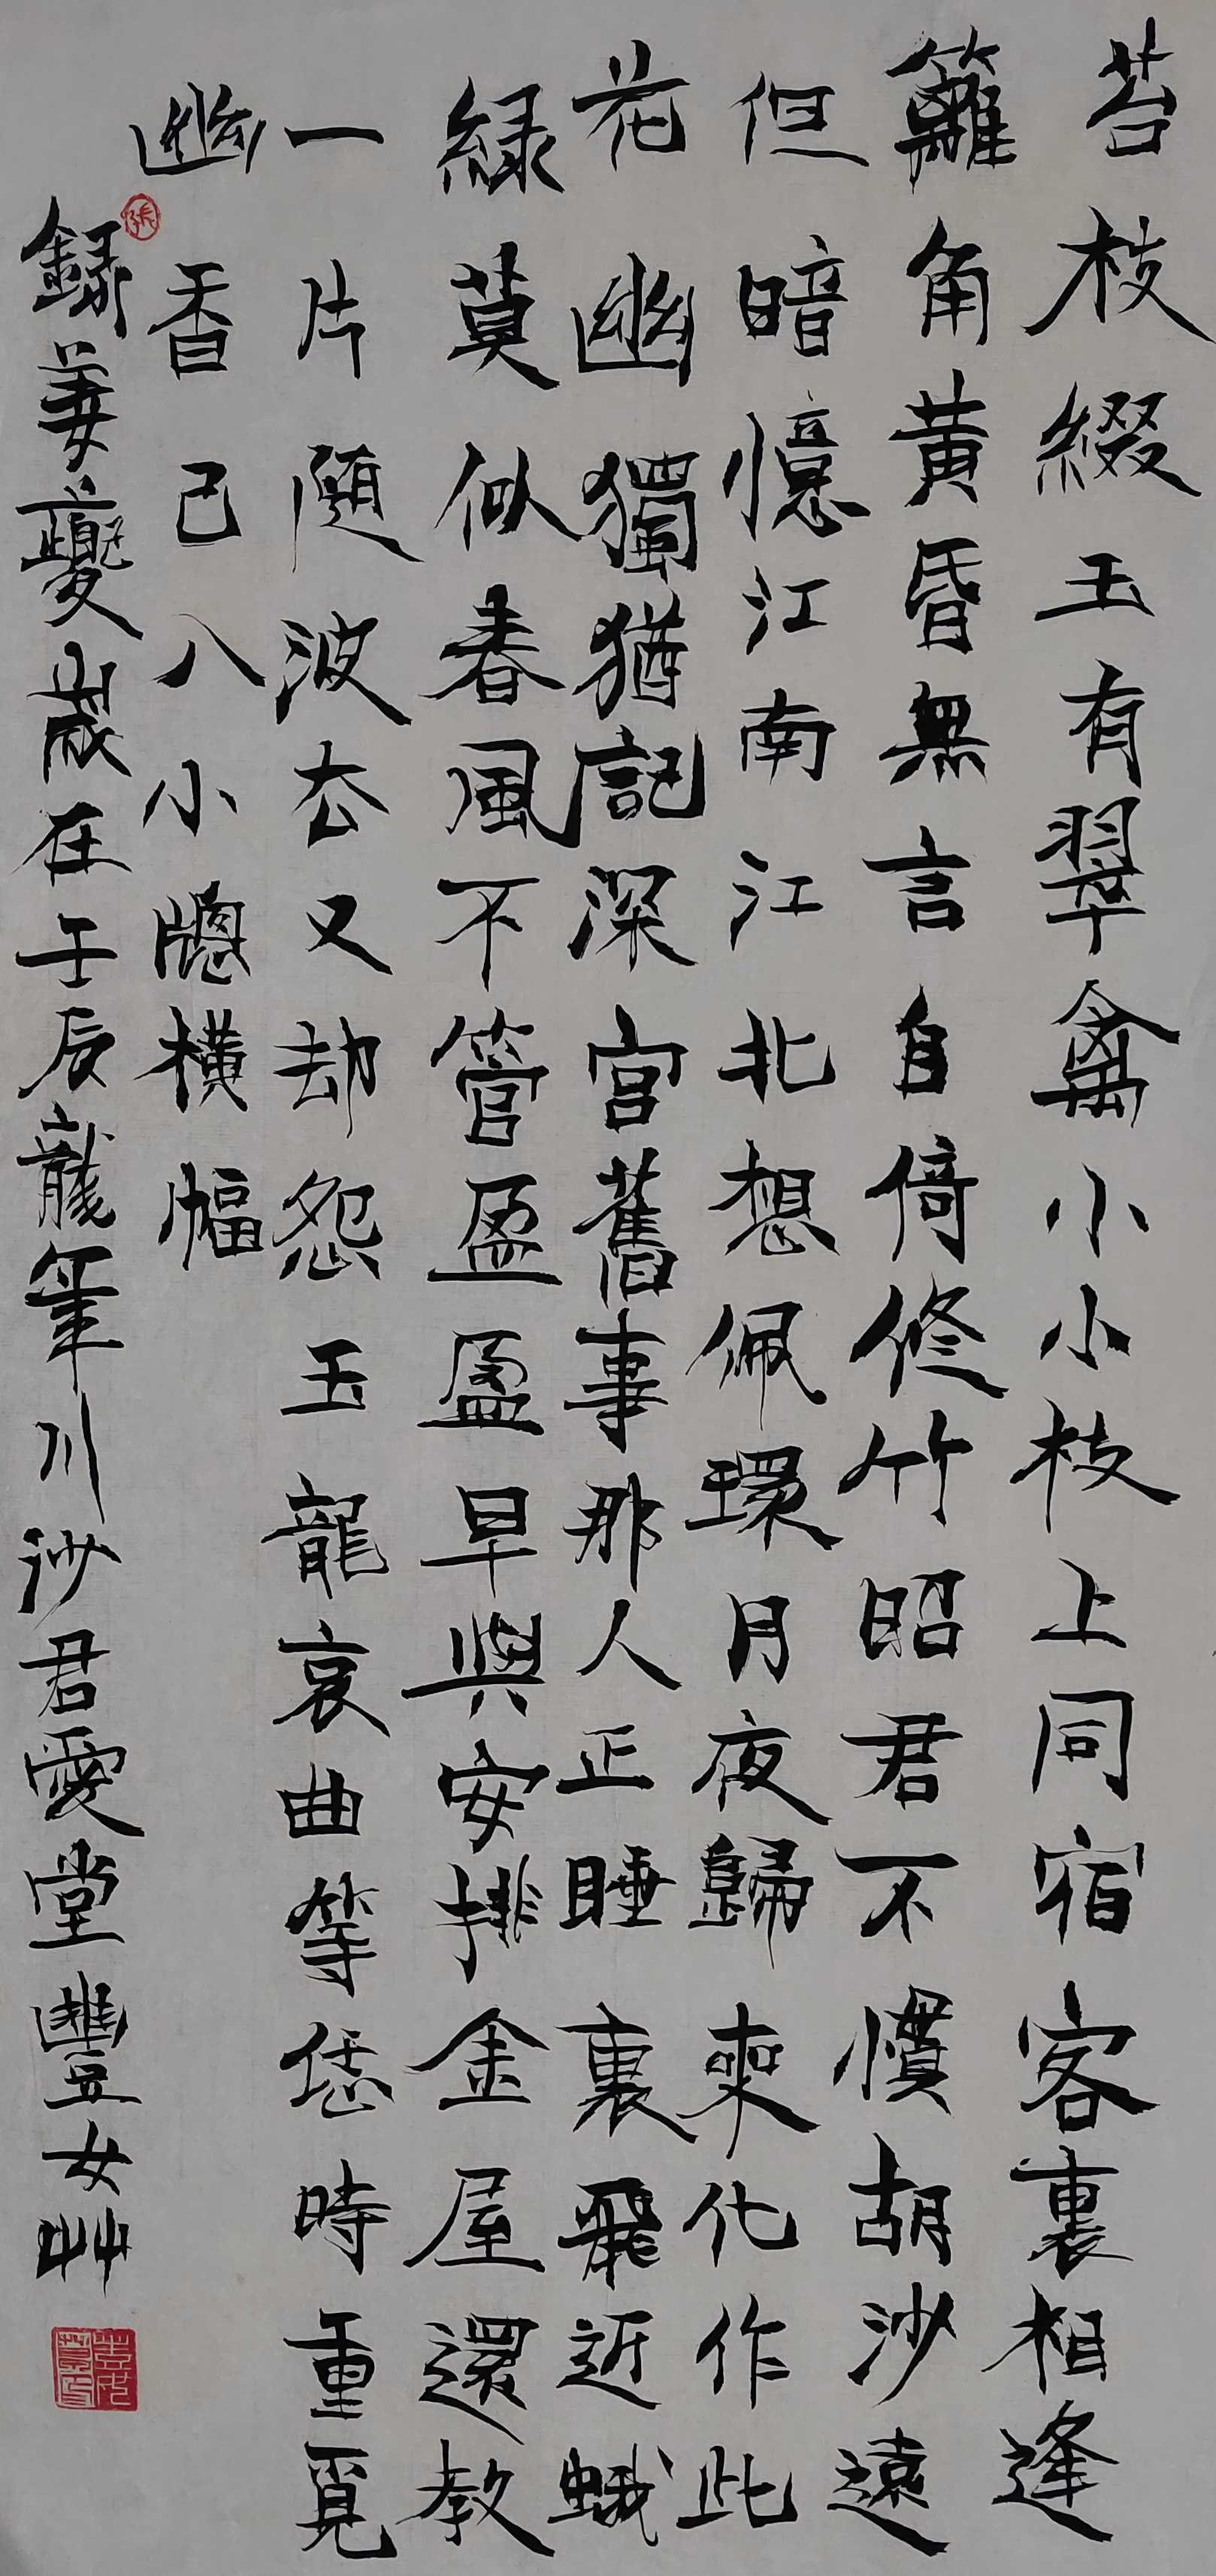 苔枝綴玉有翠禽小小枝上同宿客裏相逢
籬角黃昏無言自倚修竹昭君不慣胡沙遠
但暗憶江南江北想佩環月夜歸來化作此
花幽獨猶記深宮舊事那人正睡裏飛近蛾
綠莫似春風不管盈盈早與安排金屋還教
一片隨波去又却怨玉龍哀曲等恁時重覓
幽香已入小窗橫幅
錄姜夔歲在壬辰龍年川沙君愛堂豐女艸